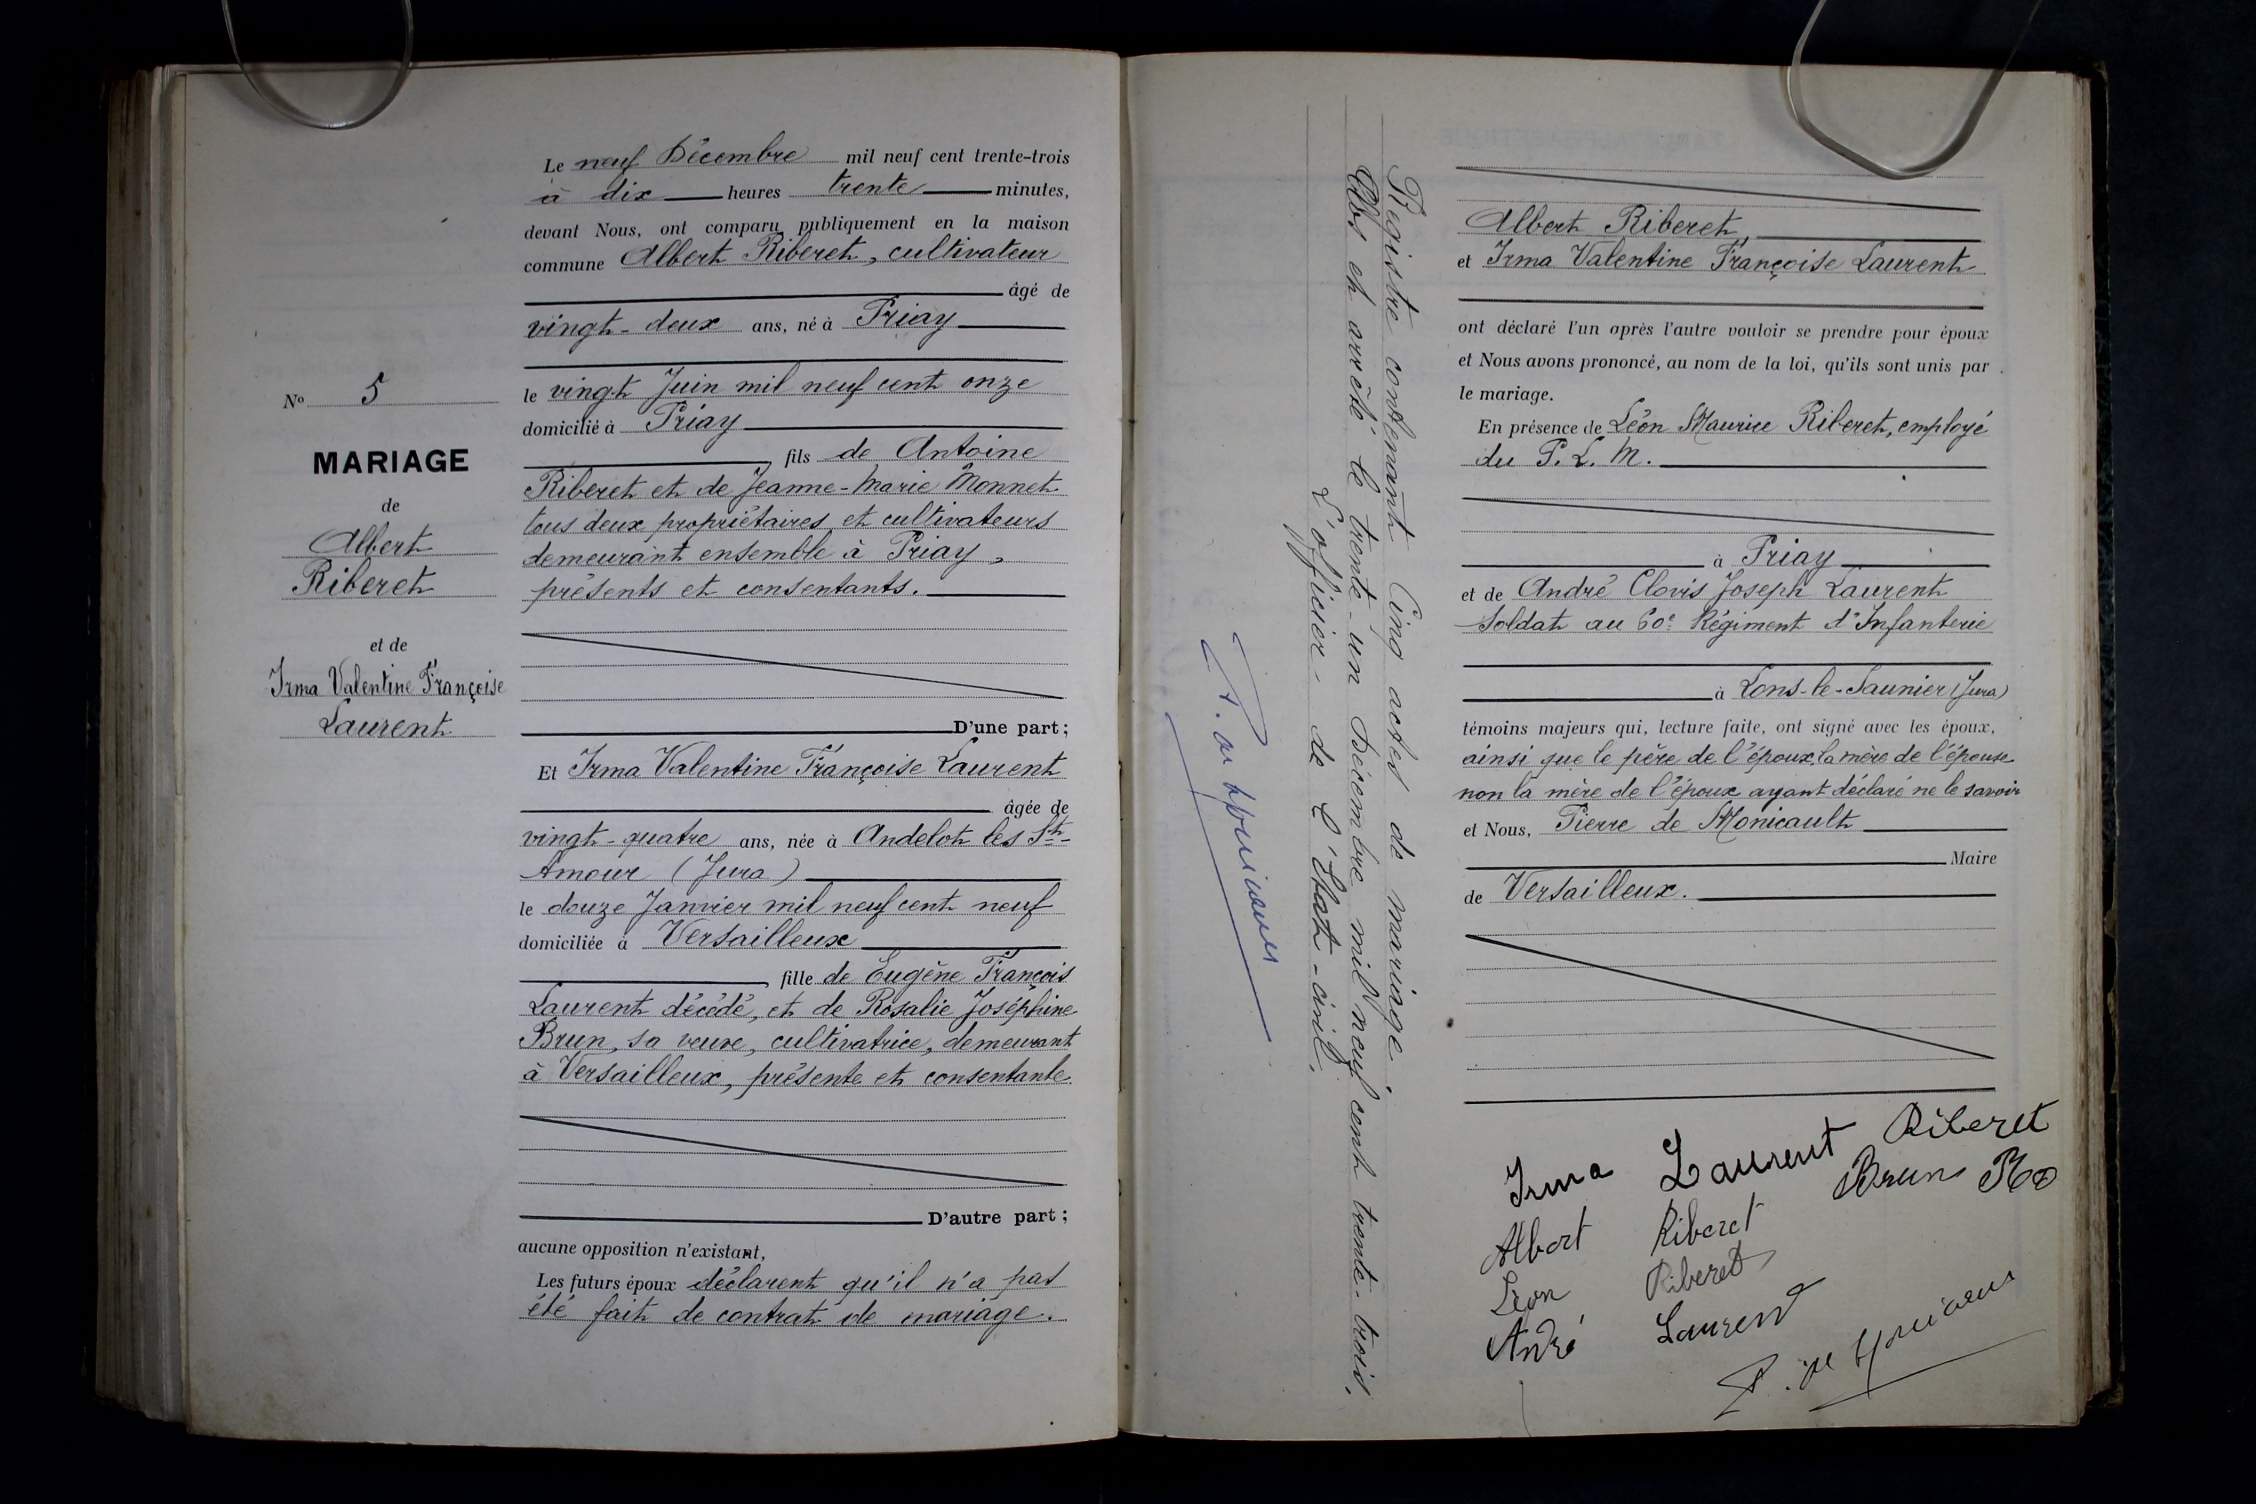 Le neuf Décembre mil neuf cent trente-trois
à dix heures trente minutes,
devant Nous, ont comparu publiquement en la maison
commune Albert Riberet, cultivateur
âgé de
vingt-deux ans, né à Priay
le vingt Juin mil neuf cent onze
domicilié à Priay
fils de Antoine
Riberet et de Jeanne-Marie Monnet
tous deux propriétaires et cultivateurs
demeurant ensemble à Priay,
présents et consentants.
D'une part;
Et Irma Valentine Françoise Laurent
âgée de
vingt-quatre ans, née à Andelot les St-
Amour (Jura)
le douze Janvier mil neuf cent neuf
domiciliée à Versailleux
fille de Eugène François
Laurent décédé, et de Rosalie Joséphine
Brun, sa veuve, cultivatrice, demeurant
à Versailleux, présente et consentante
D'autre part;
aucune opposition n'existant,
Les futurs époux déclarent qu'il n'a pas
été fait de contrat de mariage.
No 5
MARIAGE
de
Albert
Riberet
et de
Irma Valentine Françoise
Laurent
Registre contenant Cinq actes de mariage.
Clos et arrêté le trente-un Décembre mil neuf cent trente-trois.
L'officier de l'Etat-civil.
Albert Riberet
et Irma Valentine Françoise Laurent
ont déclaré l'un après l'autre vouloir se prendre pour époux
et Nous avons prononcé, au nom de la loi, qu'ils sont unis par
le mariage.
En présence de Léon Maurice Riberet, employé
du P. L. M.
à Priay
et de André Clovis Joseph Laurent
Soldat au 60e Régiment d'Infanterie
à Lons-le-Saunier (Jura)
témoins majeurs qui, lecture faite, ont signé avec les époux,
ainsi que le père de l'époux, la mère de l'épouse
non la mère de l'époux ayant déclaré ne le savoir
et Nous, Pierre de Monicault
Maire
de Versailleux.
Irma Laurent Riberet
Brun
Albert Riberet
Léon Riberet
André Laurent
P. de Monicault